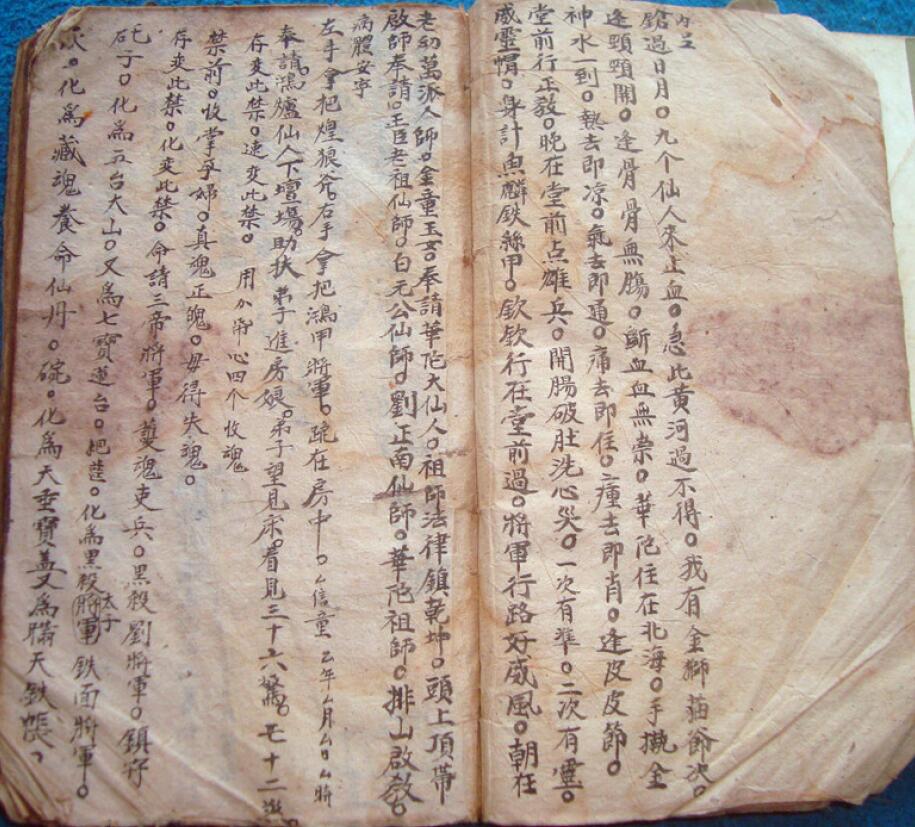 鎗過日月。九个仙人來止血。急此黃河過不得。我有金獅猫爺次。
逢頸頸開。逢骨骨無腸。斷血血無崇。華陀住在北海。手攙金
神水一到。熱去即凉。氣去即通。痛去即住。瘇去即肖。逢皮皮節。
堂前行正教。晚在堂前点雄兵。開腸破肚洗心災。一次有準。二次有靈。
威靈帽。身計魚鱗鉄絲甲。欽欽行在堂前過。將軍行路好威風。朝在
老幼萬派人師。金童玉女。奉請華陀大仙人。祖師法律鎮乾坤。頭上頂帶
啟師奉請。王臣老祖仙師。白元公仙師。劉正南仙師。華陀祖師。排山啟教。
病體安寧
左手拿把煌狼斧。右手拿把鴻甲將軍。踈在房中。厶信童厶年厶月厶日厶時
奉請鴻爐仙人下壇場。助扶弟子進房娘。弟子望見床。看見三十六煞。七十二煞
存变此禁。速变此禁。用 心四个收魂
禁前。收掌孕婦。真魂正魄。毋得失魂。
存変此禁。化变此禁。命請三帝將軍。養魂吏兵。黑殺劉將軍。鎮守
子。化為五台大山。又為七寶蓮台。把 。化為黑殺將軍太子鉄面將軍。
化為藏魂養命仙丹。碗。化為天垂寶盖又為 天鉄帳。